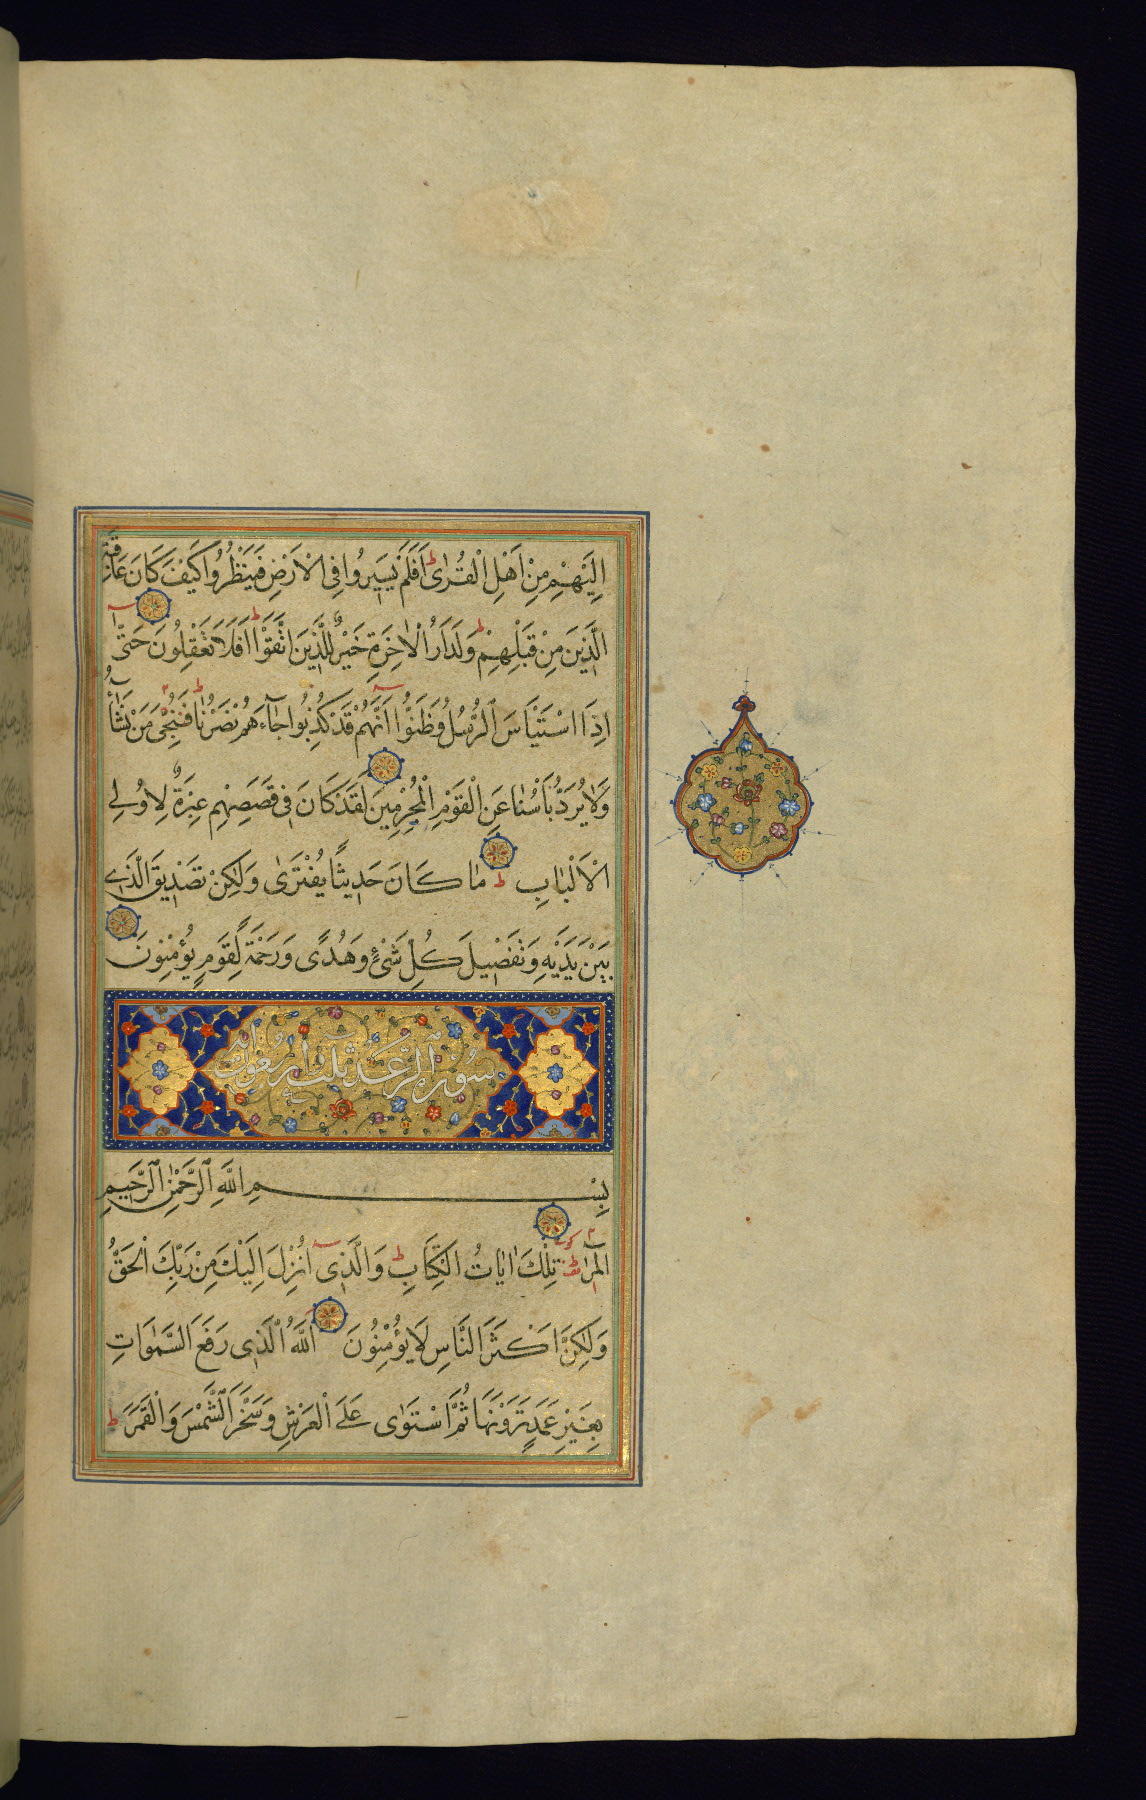 اِلَيْهِمْ مِنْ اَهْلِ الْقُرٰى اَفَلَمْ يَسِيرُوا فِى الْاَرْضِ فَيَنْظُرُوا كَيْفَ كَانَ عَاقِبَةُ
الَّذِينَ مِنْ قَبْلِهِمْ وَلَدَارُ الْاٰخِرَةِ خَيْرٌ لِلَّذِينَ اتَّقَوْا اَفَلَا تَعْقِلُونَ حَتّٰى
اِذَا اسْتَيْاَسَ الرُّسُلُ وَظَنُّوا اَنَّهُمْ قَدْ كُذِبُوا جَاءَهُمْ نَصْرُنَا فَنُجِّىَ مَنْ نَشَاءُ
وَلَا يُرَدُّ بَاْسُنَا عَنِ الْقَوْمِ الْمُجْرِمِينَ لَقَدْ كَانَ فِى قَصَصِهِمْ عِبْرَةٌ لِاُولِى
الْاَلْبَابِ ط مَا كَانَ حَدِيثًا يُفْتَرٰى وَلٰكِنْ تَصْدِيقَ الَّذِى
بَيْنَ يَدَيْهِ وَتَفْصِيلَ كُلِّ شَىْءٍ وَهُدًى وَرَحْمَةً لِقَوْمٍ يُؤْمِنُونَ
سورة الرعد ثلث اربعون اية
بِسْمِ اللّٰهِ الرَّحْمٰنِ الرَّحِيمِ
الٓمٓرٰ تِلْكَ اٰيَاتُ الْكِتَابِ ط وَالَّذِى اُنْزِلَ اِلَيْكَ مِنْ رَبِّكَ الْحَقُّ
وَلٰكِنَّ اَكْثَرَ النَّاسِ لَا يُؤْمِنُونَ اَللّٰهُ الَّذِى رَفَعَ السَّمٰوَاتِ
بِغَيْرِ عَمَدٍ تَرَوْنَهَا ثُمَّ اسْتَوٰى عَلَى الْعَرْشِ وَسَخَّرَ الشَّمْسَ وَالْقَمَرَ ط